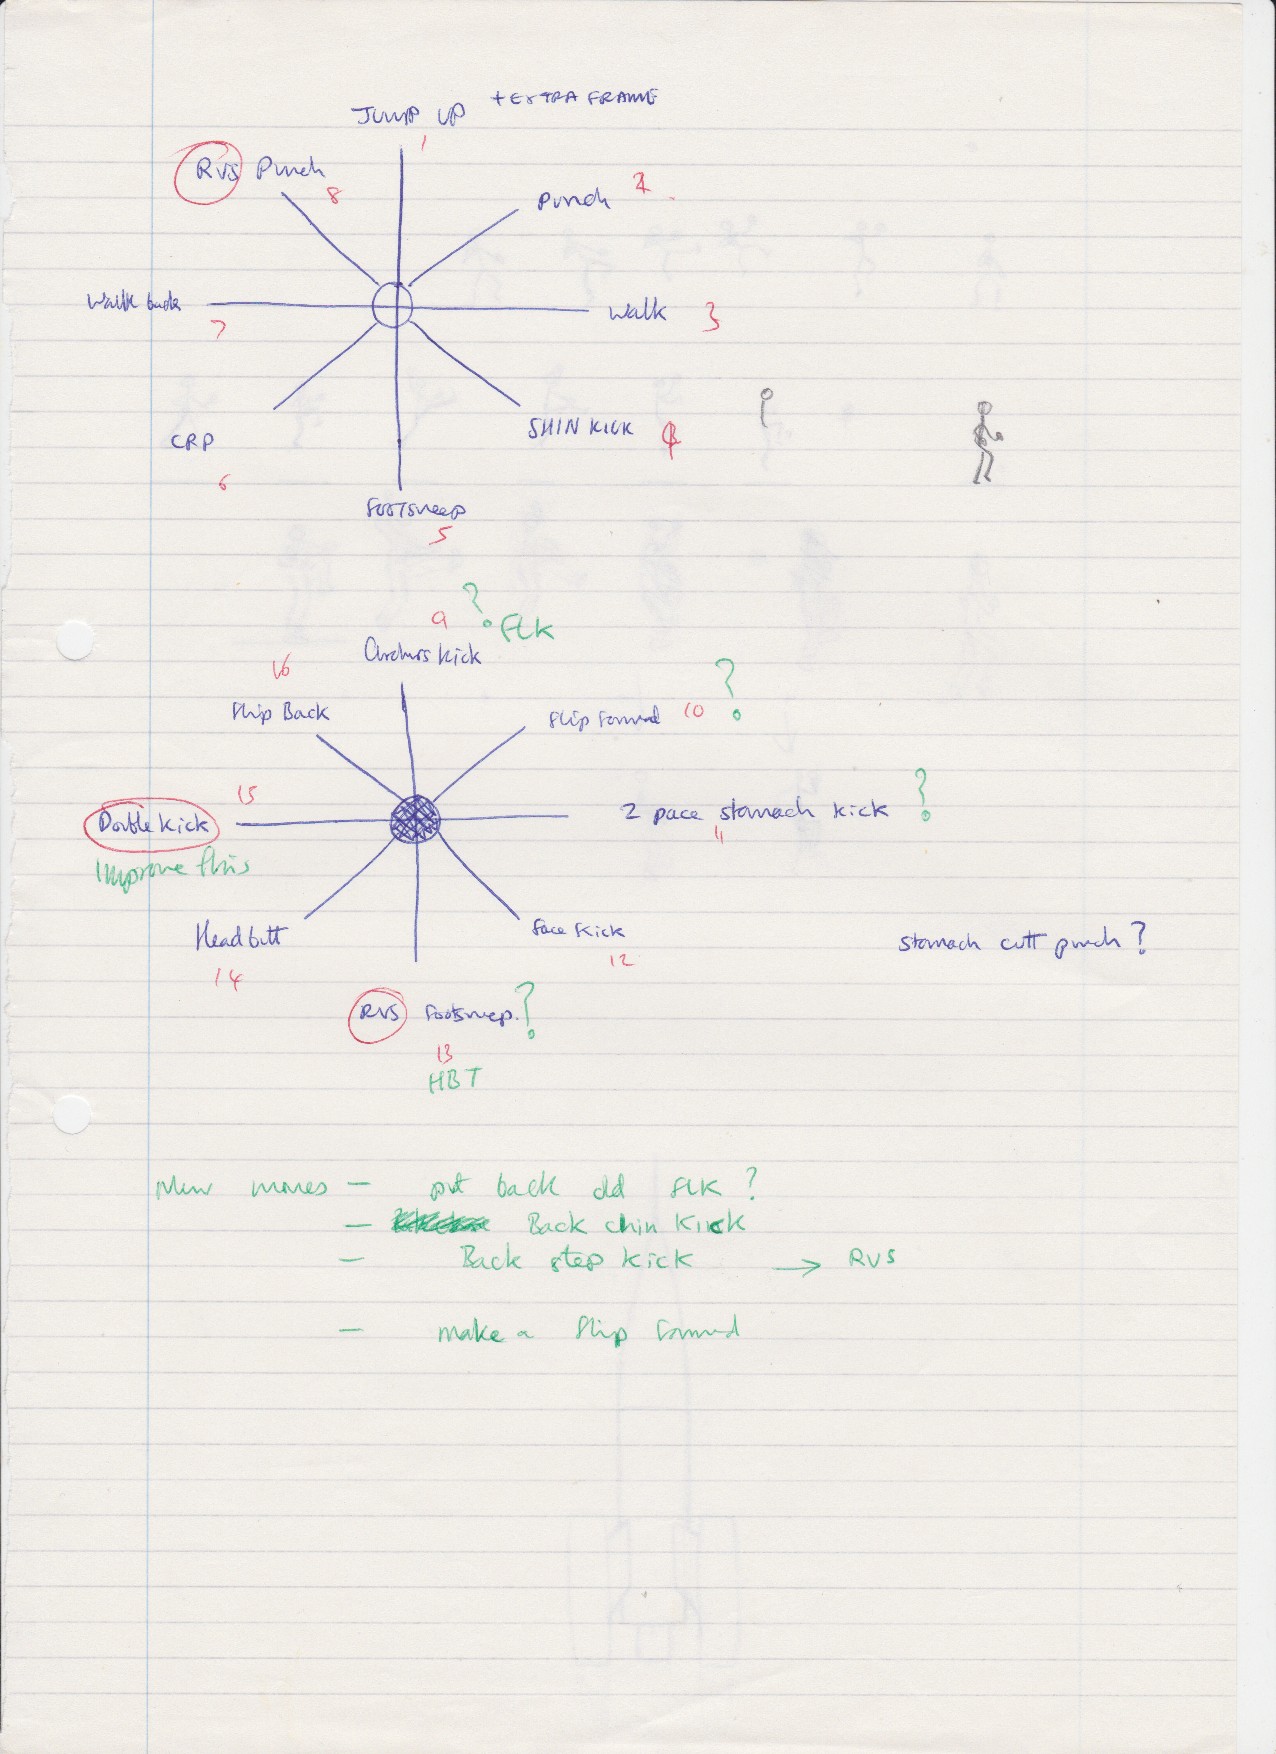 JUMP UP + EXTRA FRAME
1
RVS Punch
8
Punch 2
Walk back
7
Walk 3
CRP
6
SHIN KICK 4
FOOTSWEEP
5
9 ? FLK
Archers Kick
16
Flip Back
Flip Forward 10 ?
15
Double Kick
Improve this
2 pace stomach kick ?
11
Head butt
14
Face Kick
12
stomach cutt punch ?
RVS Footsweep. ?
13
HBT
New moves - put back old FLK ?
- Back chin Kick
- Back step Kick → RVS
- make a Flip Forward